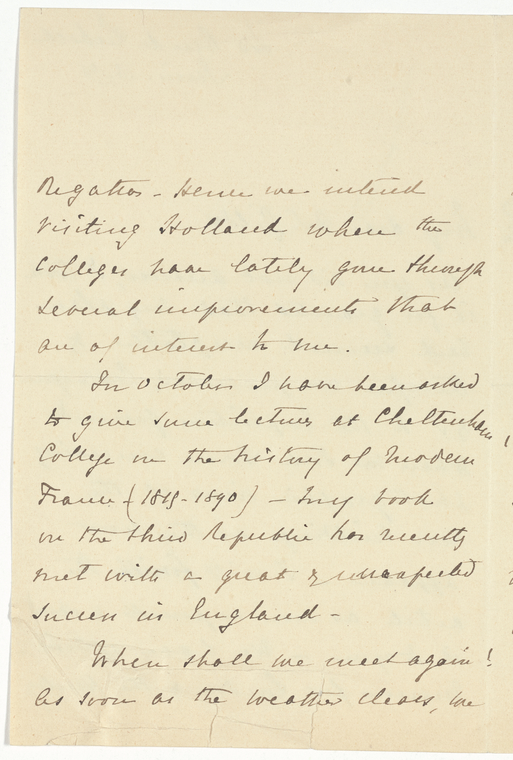 Regattas - Hence we intend
visiting Holland where the
Colleges have lately gone through
several improvements that
are of interest to me.
In October I have been asked
to give some lectures at Cheltenham
College on the history of Modern
France (1815-1890) - My book
on the Third Republic has recently
met with a great & unexpected
success in England -
When shall we meet again!
As soon as the weather clears, we